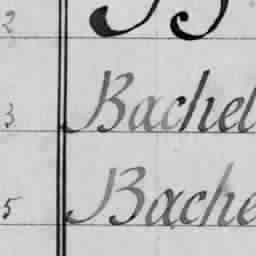 2 B
3 Bachel
5 Bache